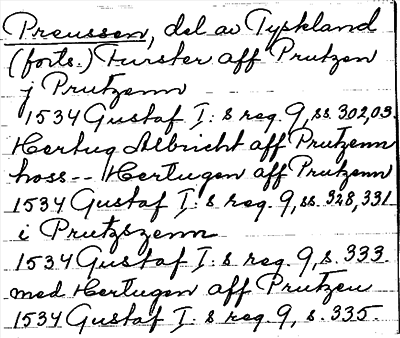 Preussen, del av Tyskland
(forts.) Furster aff Prutzen
j Prutzenn
1534 Gustaf I:s reg. 9, ss. 302,03.
Hertug Albricht aff Prutzenn
hoss -- Hertugen aff Prutzenn
1534 Gustaf I:s reg. 9, ss. 328, 331
i Prutzszenn
1534 Gustaf I:s reg. 9, s. 333.
med Hertugen aff Prutzen
1534 Gustaf I:s reg. 9, s. 335.